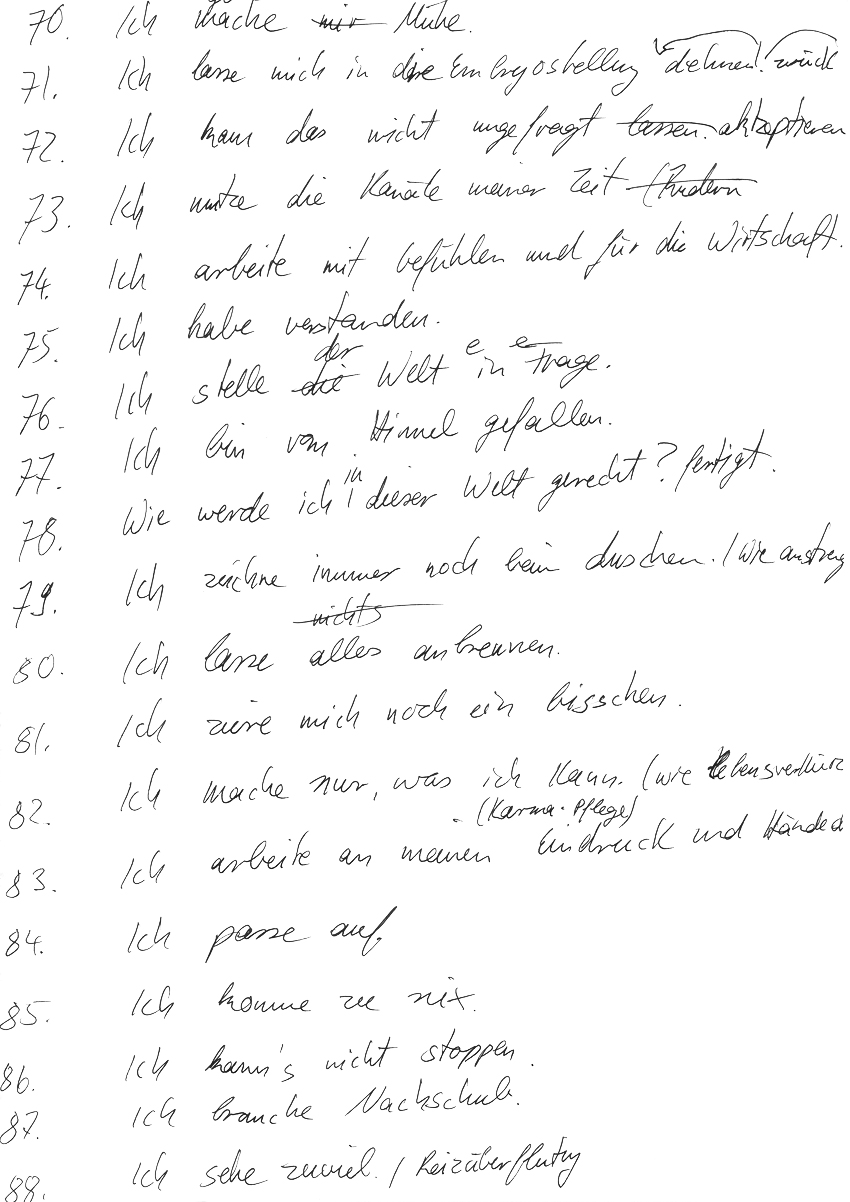 70. Ich mache mir Mühe.
71. Ich lasse mich in die Embryostellung dehnen. zurück
72. Ich kann das nicht ungefragt lassen. akzeptieren
73. Ich nutze die Kanäle meiner Zeit
74. Ich arbeite mit Gefühlen und für die Wirtschaft.
75. Ich habe verstanden.
der
76. Ich stelle die Welt e in e Frage.
77. Ich bin vom Himmel gefallen.
in
78. Wie werde ich dieser Welt gerecht? fertigt.
79. Ich zeichne immer noch beim duschen. / Wie anstreng
nichts
80. Ich lasse alles anbrennen.
81. Ich ziere mich noch ein bisschen.
82. Ich mache nur, was ich kann. (wie Lebensverkürz
(Karma-Pflege)
83. Ich arbeite an meinem Eindruck und Händed
84. Ich passe auf.
85. Ich komme zu nix.
86. Ich kann's nicht stoppen.
87. Ich brauche Nachschub.
88. Ich sehe zuviel. / Reizüberflutung